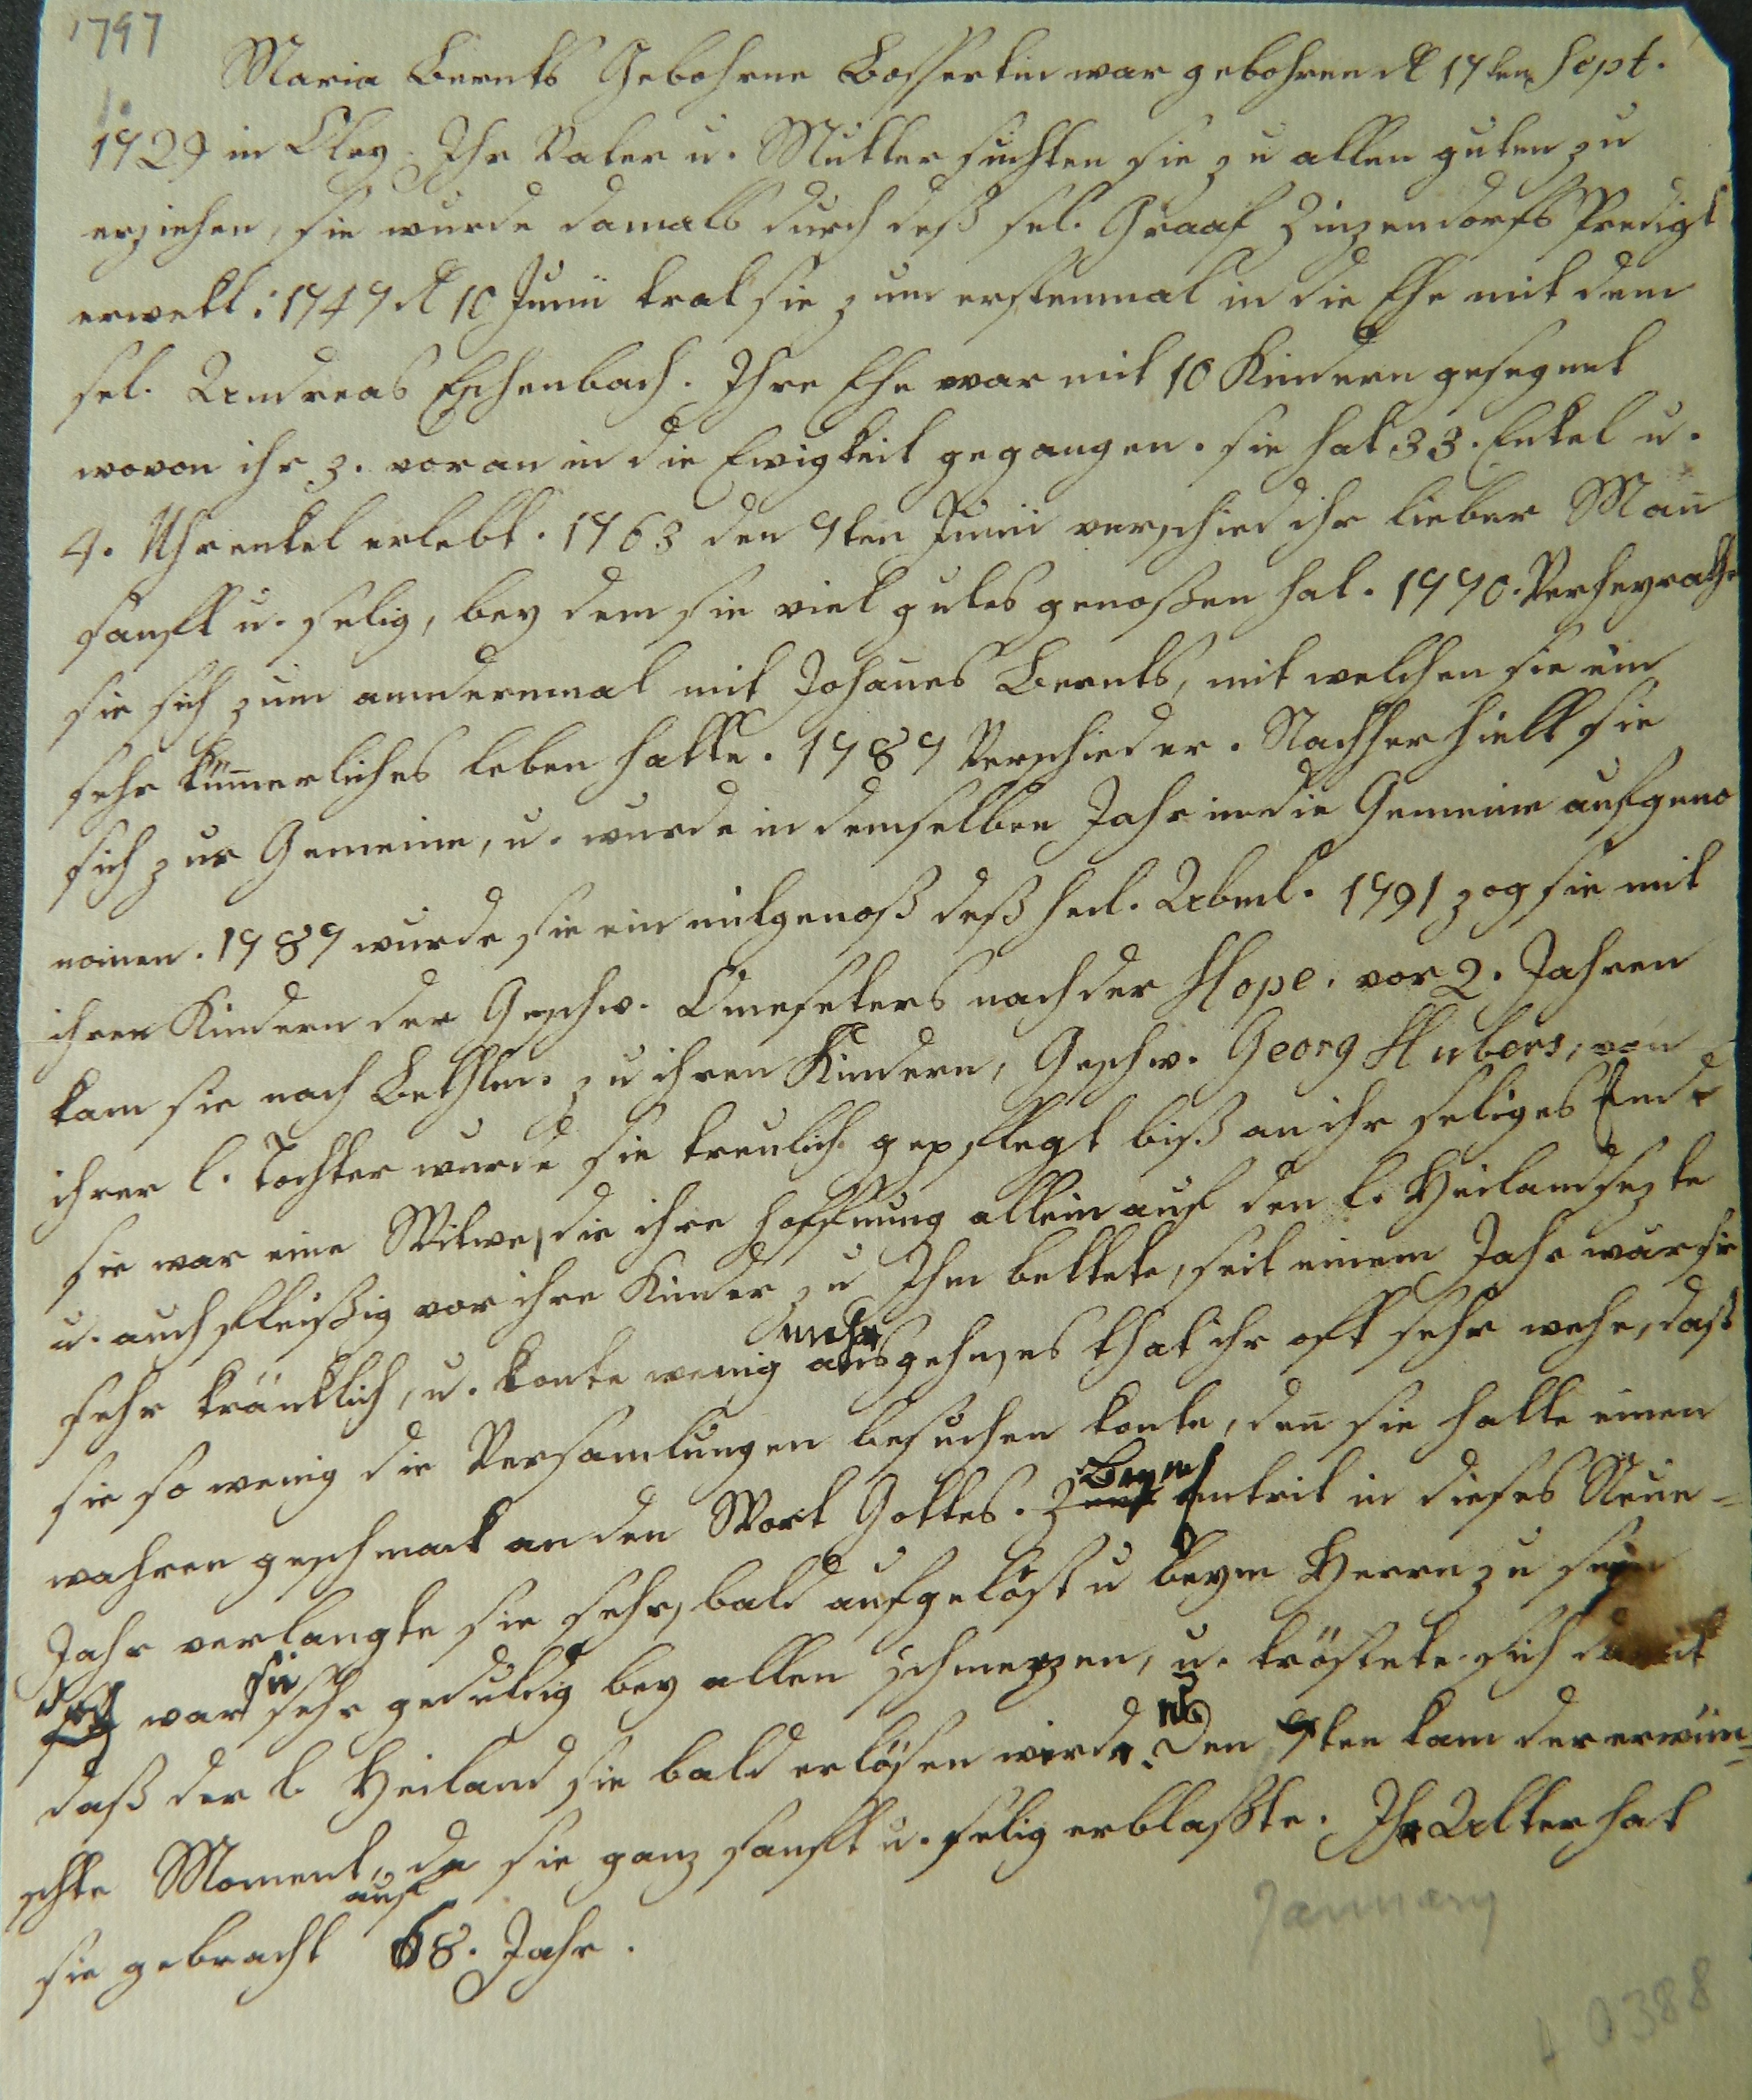 1797
Maria Bernts Gebohrne Bossertin war gebohren d 17ten Sept.
1729 in Oley. Ihr Vater u. Mutter suchten sie zu allen guten zu
erziehen, sie wurde damals durch deß sel. Graaf Zinzendorfs Predigt
erwekt: 1747 d 10 Junii trat sie zum erstenmal in die Ehe mit dem
sel. Andreas Eschenbach. Ihre Ehe war mit 10 Kindern gesegnet
wovon ihr 3. voran in die Ewigkeit gegangen. sie hat 33. Enkel u.
4. Uhrenkel erlebt. 1763 den 7ten Junii verschied ihr lieber Man̄
sanft u. selig, bey dem sie viel gutes genoßen hat. 1770. Verheyrathe
sie sich zum anndernmal mit Johan̄es Bernts, mit welchen sie ein
sehr küm̄erliches leben hatte. 1787 Verschied er. Nachher hielt sie
sich zur Gemeine, u. wurde in demselben Jahr in die Gemeine aufgeno
men. 1789 wurde sie ein mitgenoß deß heil. Abml. 1791 zog sie mit
ihren Kindern der Geschw. nach der Hope. vor 2. Jahren
kam sie nach Bethlm. zu ihren Kindern, Geschw. Georg Hubers, von
ihrer l. Tochter wurde sie treulich gepflegt biß an ihr seliges Ende
sie war eine Witwe, die ihre hoffnung allein auf den l. Heiland sezte
u. auch fleißig vor ihre Kinder zu Ihm bettete, seit einem Jahr war sie
mehr
sehr kränklich, u. konte wenig ausgehn, es that ihr oft sehr wehe, daß
sie so wenig die Versamlungen besuchen konte, den̄ sie hatte einen
Beym
wahren geschmack an den Wort Gottes. Zum Eintrit in dieses Neue-
Jahr verlangte sie sehr, bald aufgelöst u beym Herrn zu seyn
sie
doch war sehr geduldig bey allen schmerzen, u. tröstete sich damit
daß der l Heiland sie bald erlösen wirde. Den 7ten kam der erwün-
schte Moment, da sie ganz sanft u. selig erblaßte. Ihr Alter hat
auf
sie gebracht 68. Jahr.
January
0388